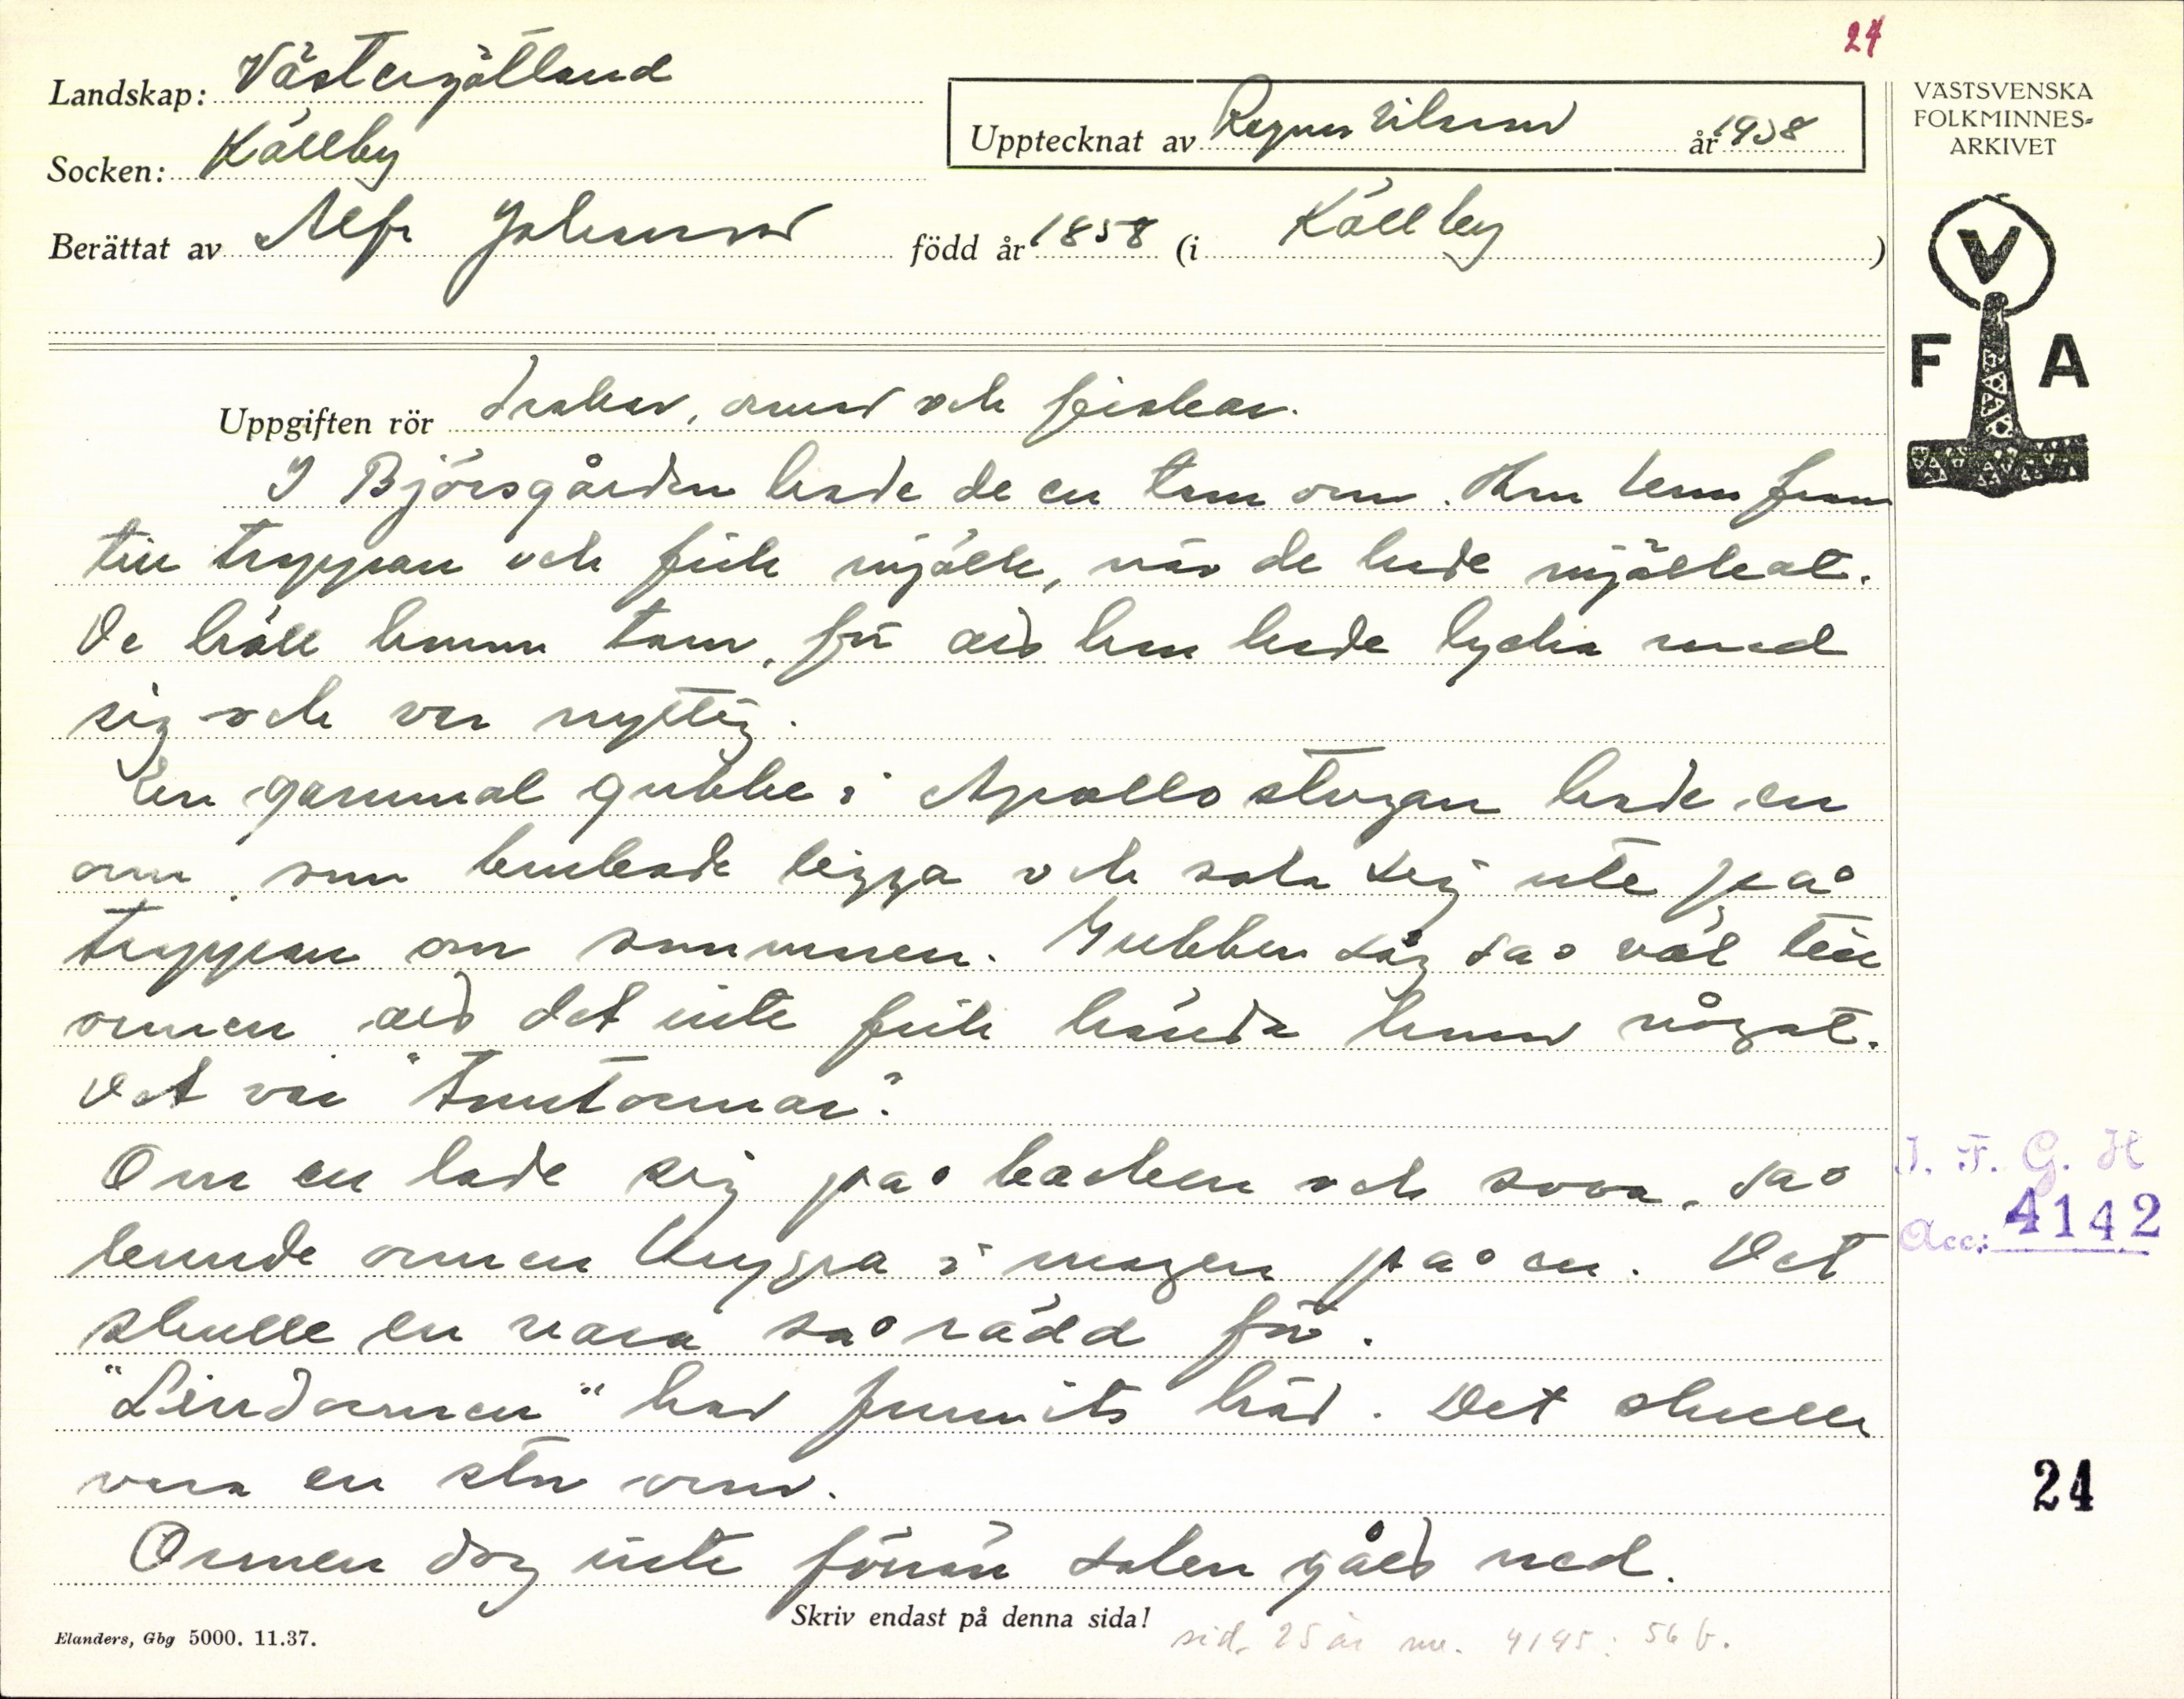 24
Landskap: Västergötland
Socken: Källby
Upptecknat av Ragnar Nilsson år 1938
Berättat av Alfr Johansson född år 1858 (i Källby)
VÄSTSVENSKA
FOLKMINNES-
ARKIVET
V
F A
Uppgiften rör draken, ormar och fiskar.
I Björsgården hade de en tam orm. Han kom fram
till trappan och fick mjölk, när de hade mjölkat.
De höll honom tam, för att han hade lycka med
sig och var nyttig.
En gammal gubbe i Apollostugan hade en
orm, som brukade ligga och sola sig ute på
trappan om sommaren. Gubben såg så väl till
ormen att det inte fick hända honom något.
Det var "tomtormar".
Om en lade sig på backen och sova, så
kunde ormen krypa i magen på en. Det
skulle en vara så rädd för.
"Lindormen" har funnits här. Det skulle
vara en stor orm.
Ormen dog inte förrän solen gått ned.
I. F. G. H
Acc: 4142
24
Skriv endast på denna sida!
Elanders, Gbg 5000. 11.37.
sid. 25 är nr. 4145: 56 b.